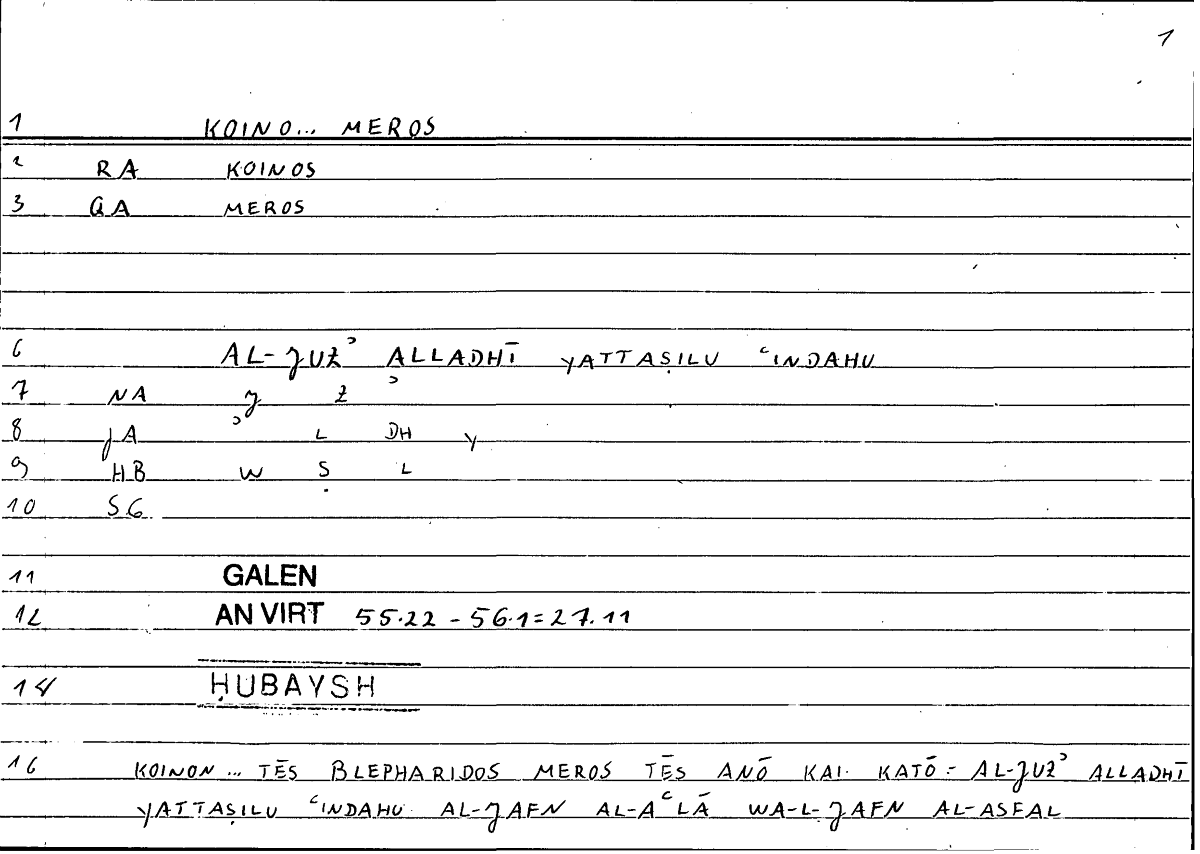 1
1 KOINO... MEROS
2 RA KOINOS
3 QA MEROS
6 AL-JUZʾ ALLADHĪ YATTAṢILU ʿINDAHU
7 NA J Z ʾ
8 JA ʾ L DH Y
9 HB W Ṣ L
10 SG
11 GALEN
12 AN VIRT 55.22 - 56.1 = 27.11
14 ḤUBAYSH
16 KOINON ... TĒS BLEPHARIDOS MEROS TĒS ANŌ KAI KATŌ = AL-JUZʾ ALLADHĪ
YATTAṢILU ʿINDAHU AL-JAFN AL-AʿLĀ WA-L-JAFN AL-ASFAL